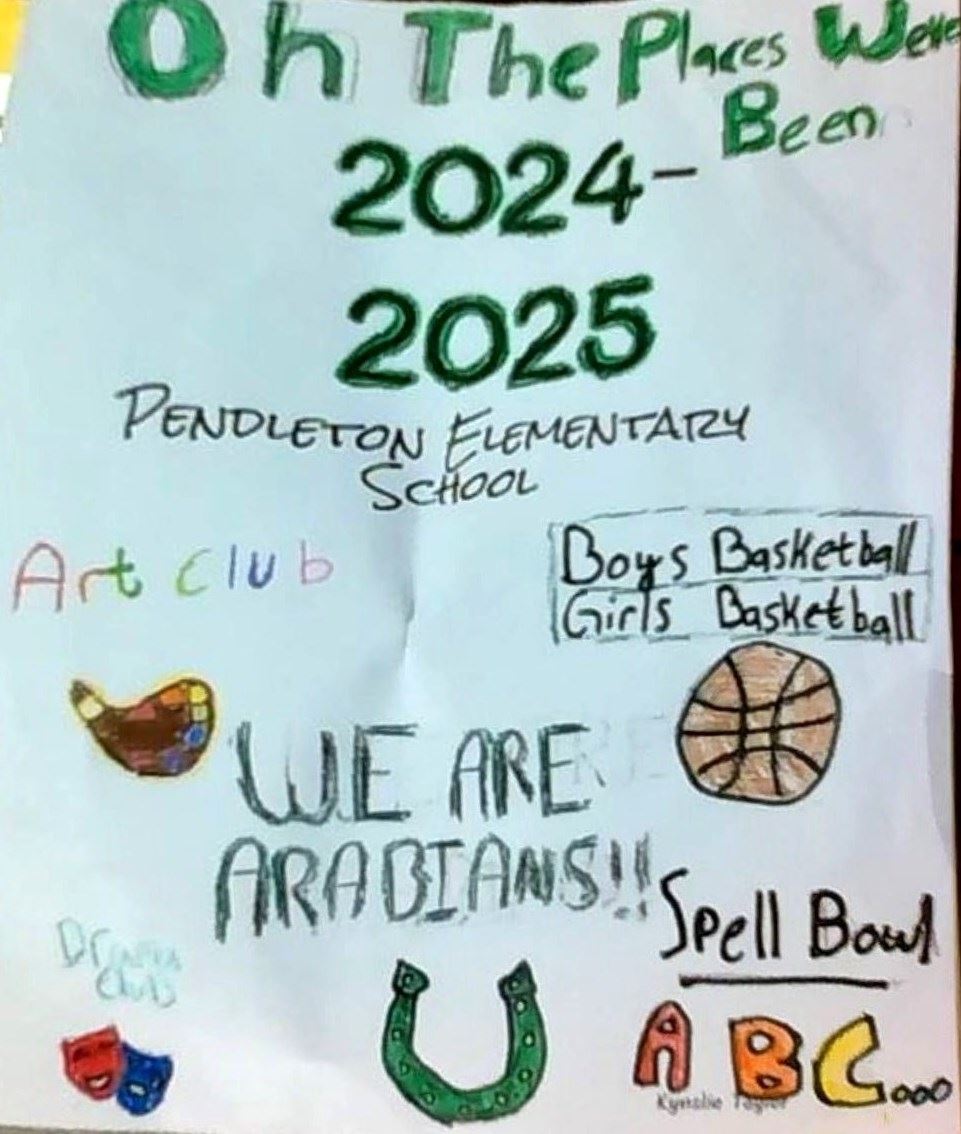 Oh The Places We've
Been
2024-
2025
PENDLETON ELEMENTARY
SCHOOL
Art club
Boys Basketball
Girls Basketball
WE ARE
ARABIANS!!
Spell Bowl
Drama
Club
A B C...
Taylor